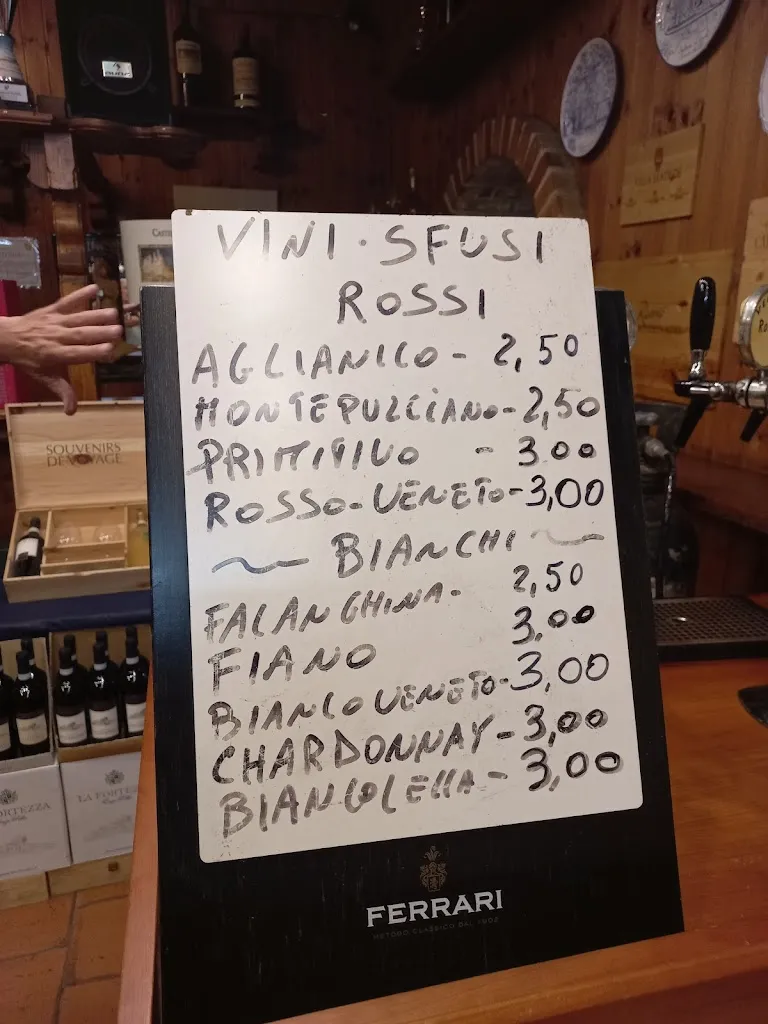 VINI · SFUSI
ROSSI
AGLIANICO - 2,50
MONTEPULCIANO - 2,50
PRIMITIVO - 3.00
ROSSO-VENETO - 3,00
~ BIANCHI ~
FALANGHINA - 2,50
FIANO 3,00
BIANCO VENETO - 3,00
CHARDONNAY - 3,00
BIANCOLELLA - 3,00
FERRARI
METODO CLASSICO DAL 1902
SOUVENIRS
DE VOYAGE
LA FORTEZZA